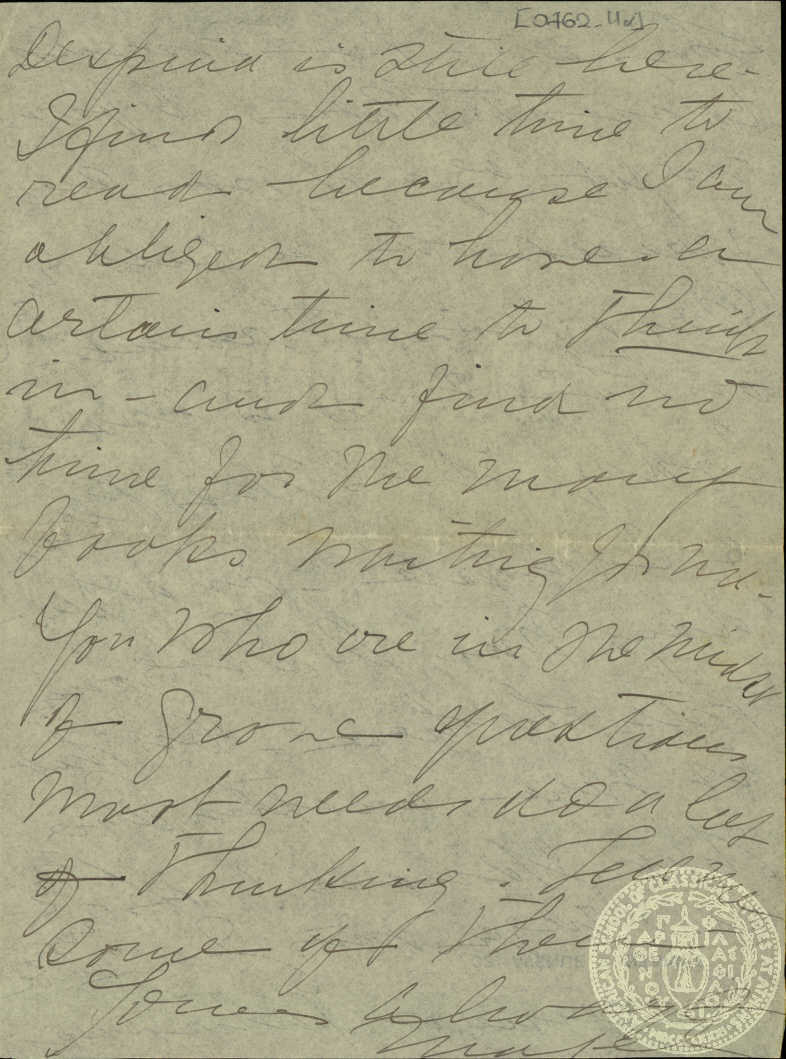 [0762-11d]
Despina is still here -
I find little time to
read because I am
obliged to have a
certain time to think
in - and find no
time for the many
books waiting for me -
You who are in the midst
of grave questions
must needs do a lot
of thinking. Tell me
some of them
Yours